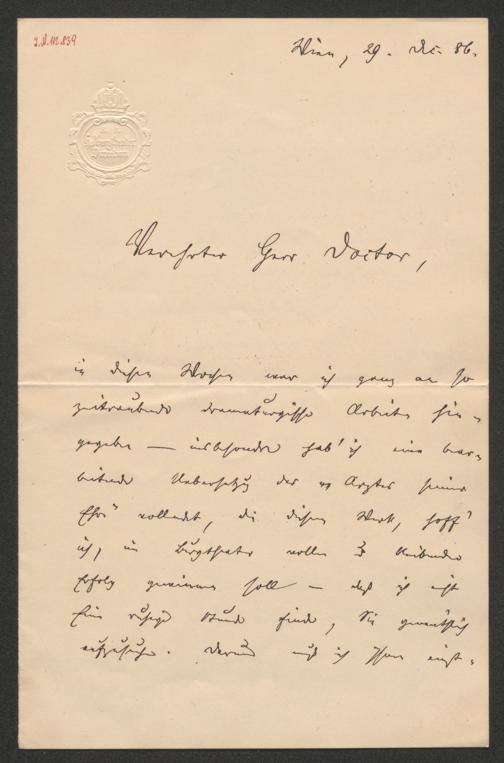 I.N. 112.839
Wien, 29. Dec. 86.
Verehrter Herr Doctor,
in diesen Wochen war ich ganz an so
zeitraubende dramaturgische Arbeiten hin-
gegeben — insbesondre hab' ich eine bear-
beitende Uebersetzung des „Arztes seiner
Ehre" vollendet, die diesem Werk, hoff'
ich, im Burgtheater vollen & bleibenden
Erfolg gewinnen soll — daß ich nicht
Eine ruhige Stunde finde, Sie persönlich
aufzusuchen. Darum muß ich Ihnen